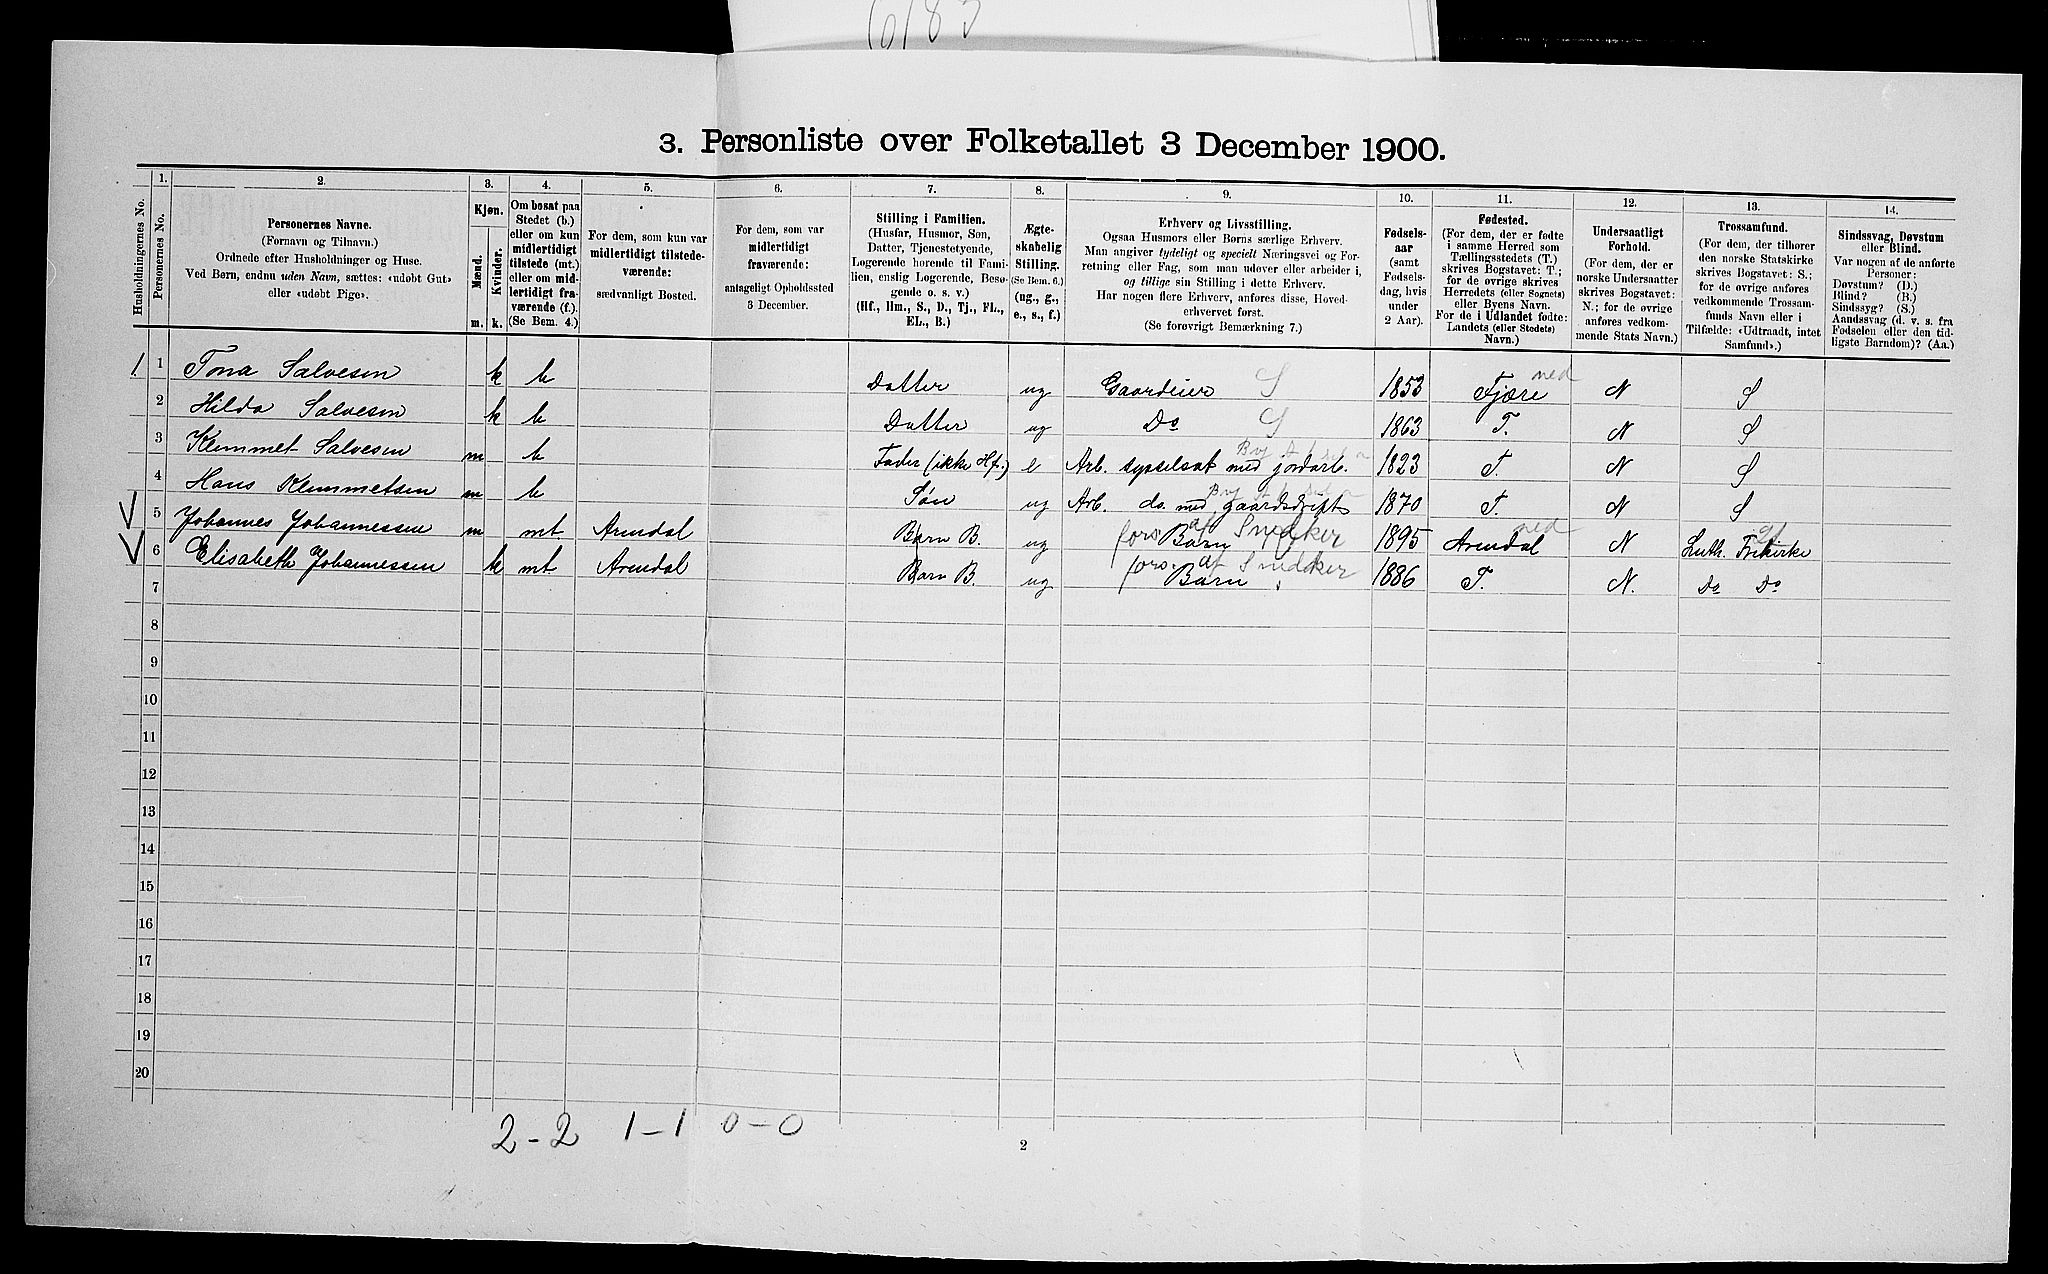 6183
3. Personliste over Folketallet 3 December 1900.
Husholdningernes No.
1. Personernes No.
2. Personernes Navne. (Fornavn og Tilnavn.) Ordnede efter Husholdninger og Huse. Ved Børn, endnu uden Navn, sættes: «udøbt Gut» eller «udøbt Pige».
3. Kjøn. Mænd. m. Kvinder. k.
4. Om bosat paa Stedet (b.) eller om kun midlertidigt tilstede (mt.) eller om midlertidigt fraværende (f.). (Se Bem. 4.)
5. For dem, som kun var midlertidigt tilstedeværende: sædvanligt Bosted.
6. For dem, som var midlertidigt fraværende: antageligt Opholdssted 3 December.
7. Stilling i Familien. (Husfar, Husmor, Søn, Datter, Tjenestetyende, Logerende hørende til Familien, enslig Logerende, Besøgende o. s. v.) (Hf., Hm., S., D., Tj., FL., EL., B.)
8. Ægteskabelig Stilling. (Se Bem. 6.) (ug., g., e., s., f.)
9. Erhverv og Livsstilling. Ogsaa Husmors eller Børns særlige Erhverv. Man angiver tydeligt og specielt Næringsvei og Forretning eller Fag, som man udøver eller arbeider i, og tillige sin Stilling i dette Erhverv. Har nogen flere Erhverv, anføres disse, Hovederhvervet først. (Se forøvrigt Bemærkning 7.)
10. Fødselsaar (samt Fødselsdag, hvis under 2 Aar).
11. Fødested. (For dem, der er fødte i samme Herred som Tællingsstedets (T.) skrives Bogstavet: T.; for de øvrige skrives Herredets (eller Sognets) eller Byens Navn. For de i Udlandet fødte: Landets (eller Stedets) Navn.)
12. Undersaatligt Forhold. (For dem, der er norske Undersaatter skrives Bogstavet: N.; for de øvrige anføres vedkommende Stats Navn.)
13. Trossamfund. (For dem, der tilhører den norske Statskirke skrives Bogstavet: S.; for de øvrige anføres vedkommende Trossamfunds Navn eller i Tilfælde: «Udtraadt, intet Samfund».)
14. Sindssvag, Døvstum eller Blind. Var nogen af de anførte Personer: Døvstum? (D.) Blind? (B.) Sindssyg? (S.) Aandssvag (d. v. s. fra Fødselen eller den tidligste Barndom)? (Aa.)
1. 1 Tona Salvesen k b Datter ug Gaardeier S 1853 Fjære ned N S
2 Hilda Salvesen k b Datter ug Do S 1863 T. N S
3 Klemmet Salvesen m b Fader (ikke Hf.) e Arb. sysselsat med jordarb. 1823 T N S
4 Hans Klemmetsen m b Søn ug Arb. do. med gaardsdrift 1870 T. N S
5 Johannes Johannessen m mt Arendal Barn B. ug fors. Barn af Snedker 1895 Arendal ned N Luth. Frikirke
6 Elisabeth Johannessen k mt Arendal Barn B. ug fors. Barn af Snedker 1886 T. N. Do Do
7
8
9
10
11
12
13
14
15
16
17
18
19
20
2-2 1-1 0-0
2